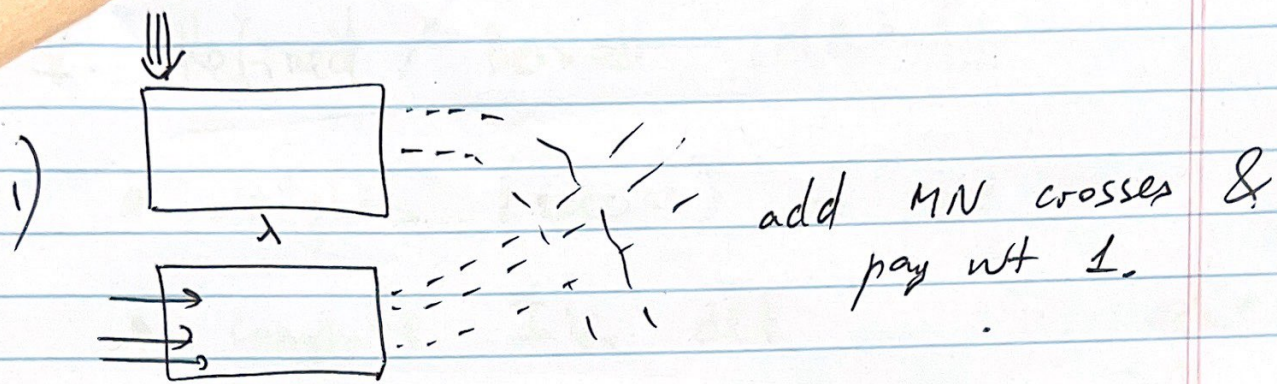 1)
λ
add MN crosses &
pay wt 1.